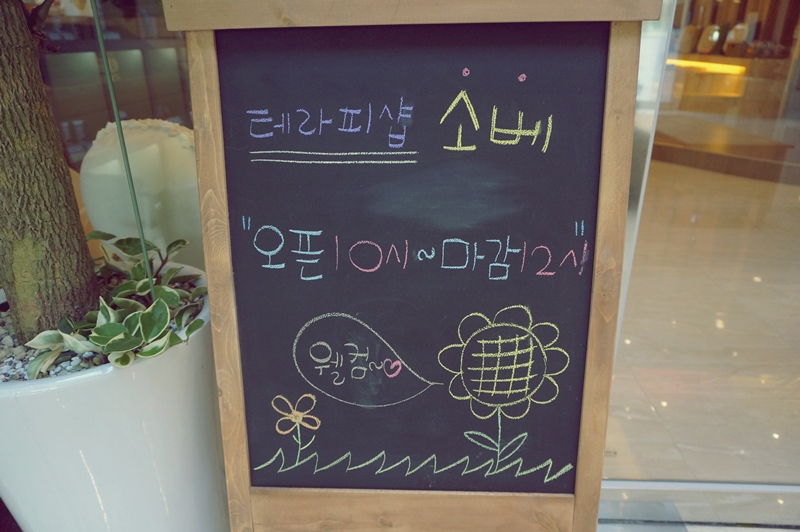 테라피샵 소베
"오픈10시~마감12시"
웰컴~♡